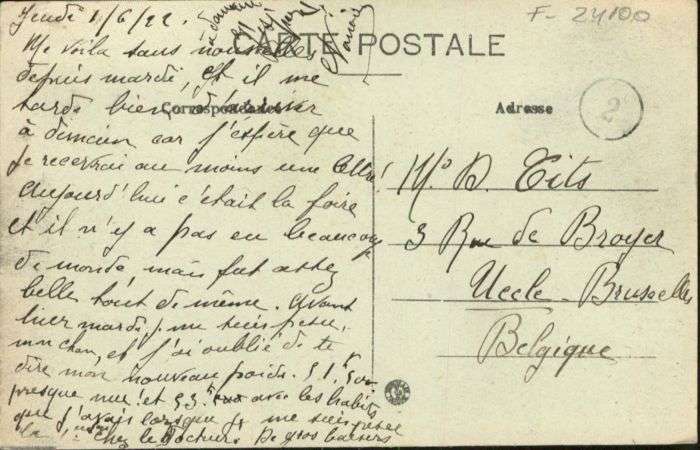 Jeudi 1/6/22.
F- 24100
à demain
CARTE POSTALE
Correspondance
Adresse
2
Me voilà sans nouvelles
depuis mardi, et il me
tarde bien d'arriver
à demain car j'espère que
je recevrai au moins une lettre!
aujourd'hui c'était la foire
et il n'y a pas eu beaucoup
de monde, mais fut assez
belle tout de même. Avant
hier mardi, j. me suis pesée,
mon cher, et j'ai oublié de te
dire mon nouveau poids. 51K 500
presque nue! et 53K avec les habits
que j'avais lorsque je me suis pesée
là! chez le Docteur. De gros baisers
Mr D. Tits
3 Rue de Broyer
Uccle-Bruxelles
Belgique